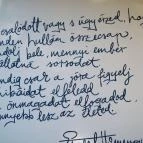 csalódott vagy s úgy érzed, hog
inden hullám összecsap,
dolj bele, mennyi ember
állalná sorsodat.
indig csak a jóra figyelj
hibáidat elfeledd
önmagadat elfogadod.
nnyebb lesz az életed.